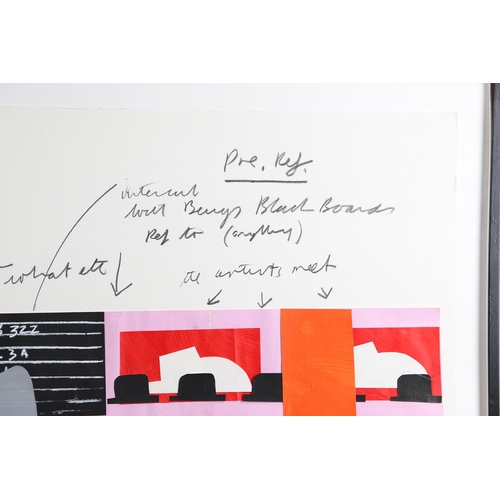 Pre. Ref.
intercut
with Beuys Black Boards
Ref to (anything)
what
the artists meet
322
3A